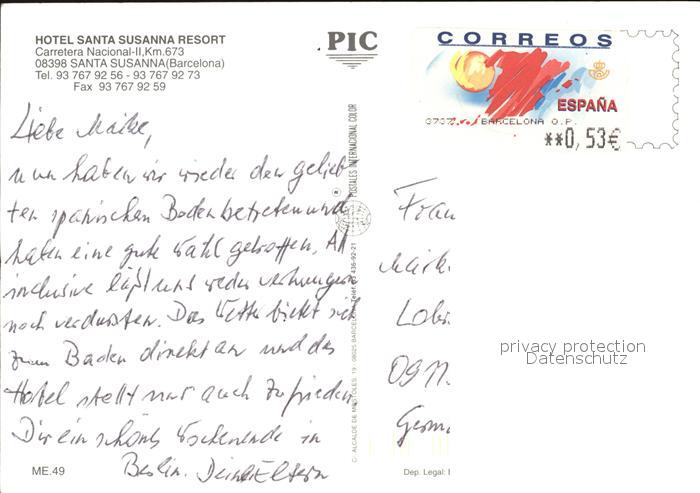 HOTEL SANTA SUSANNA RESORT
Carretera Nacional-II,Km.673
08398 SANTA SUSANNA(Barcelona)
Tel. 93 767 92 56 - 93 767 92 73
Fax 93 767 92 59
PIC
CORREOS
ESPAÑA
BARCELONA O.P.
**0,53€
Liebe Maike,
nun haben wir wieder den gelieb
ten spanischen Boden betreten und
haben eine gute Wahl getroffen. All
inclusive läßt uns weder verhungern
noch verdursten. Das Wetter bietet sich
zum Baden direkt an und das
Hotel stellt uns auch zufrieden
Dir ein schönes Wochenende in
Berlin. Deine Eltern
POSTALES INTERNACIONAL COLOR
C/ ALCALDE DE MOSTOLES, 19 - 08025 BARCELONA - Telef. 93 436-92-21
Frau
Maik
Lobi
0911
Germ
privacy protection
Datenschutz
ME.49
Dep. Legal: